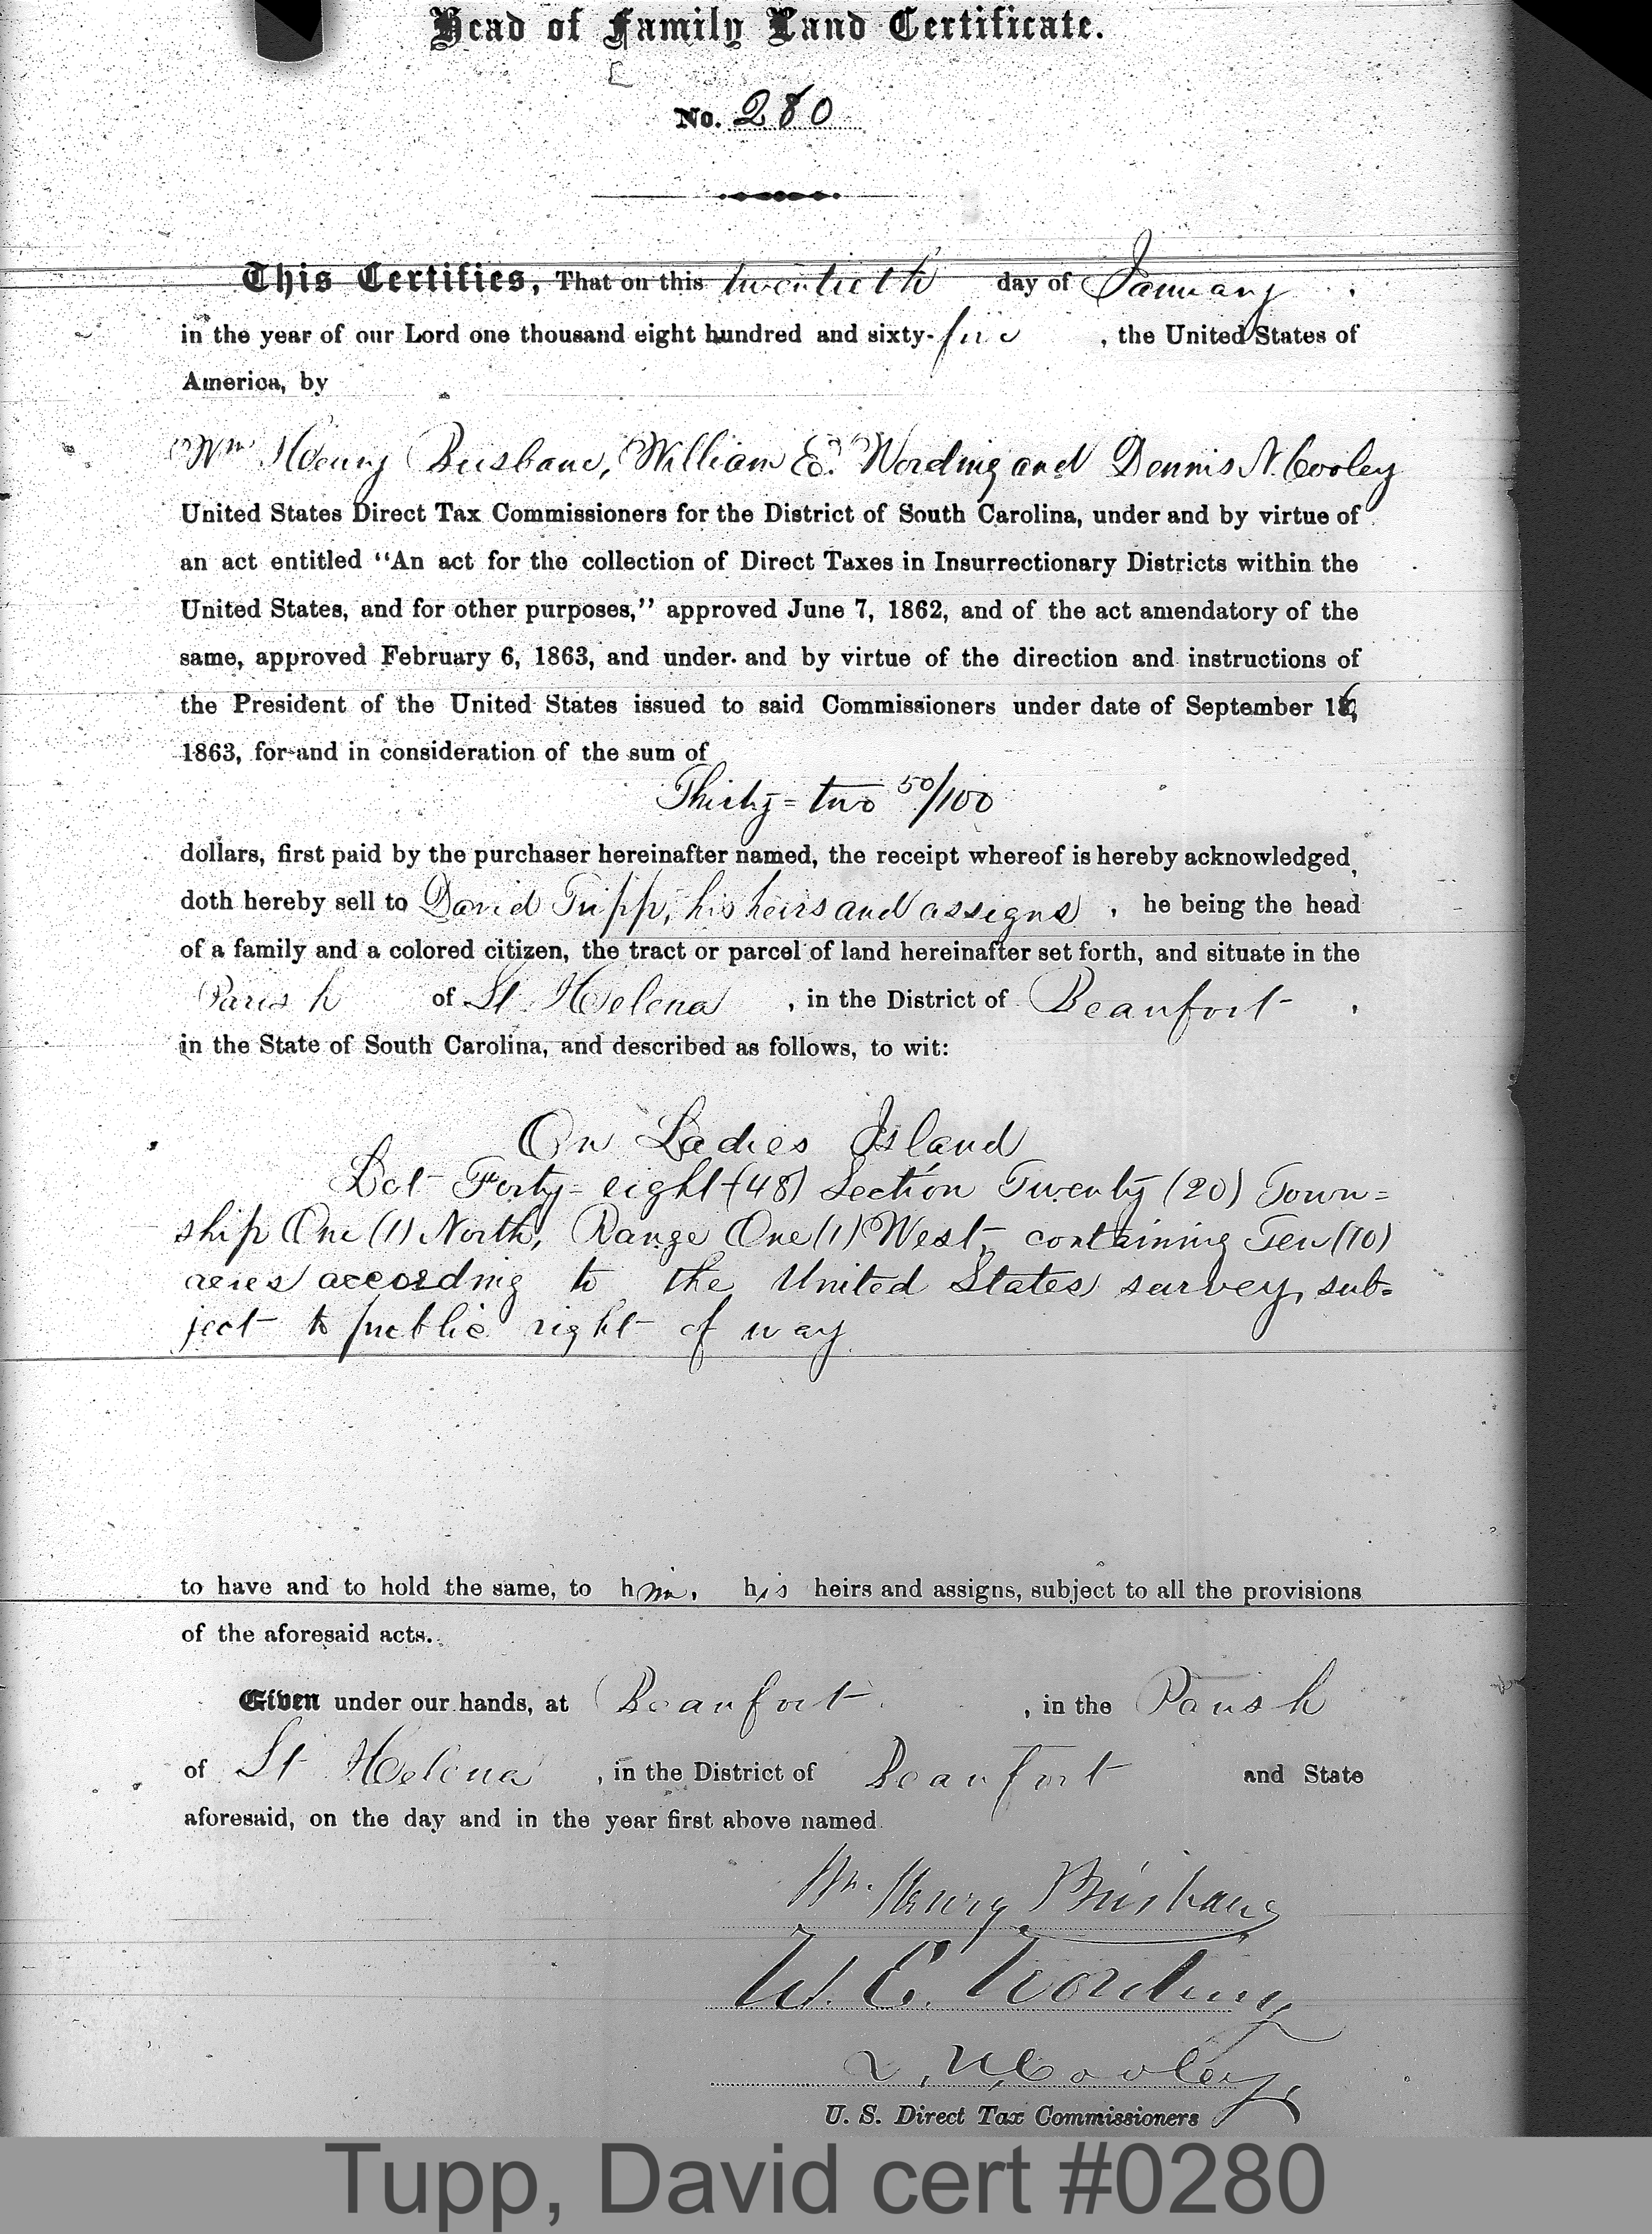 Head of Family Land Certificate.
No. 280
This Certifies, That on this twentieth day of January
in the year of our Lord one thousand eight hundred and sixty-five, the United States of
America, by
Wm Henry Brisbane, William E. Wording and Dennis N. Cooley
United States Direct Tax Commissioners for the District of South Carolina, under and by virtue of
an act entitled “An act for the collection of Direct Taxes in Insurrectionary Districts within the
United States, and for other purposes,” approved June 7, 1862, and of the act amendatory of the
same, approved February 6, 1863, and under and by virtue of the direction and instructions of
the President of the United States issued to said Commissioners under date of September 16,
1863, for and in consideration of the sum of
Thirty-two 50/100
dollars, first paid by the purchaser hereinafter named, the receipt whereof is hereby acknowledged,
doth hereby sell to David Tripp, his heirs and assigns, he being the head
of a family and a colored citizen, the tract or parcel of land hereinafter set forth, and situate in the
Parish of St. Helena, in the District of Beaufort,
in the State of South Carolina, and described as follows, to wit:
On Ladies Island
Lot Forty-eight (48) Section Twenty (20) Town=
ship One (1) North, Range One (1) West, containing Ten (10)
acres according to the United States survey, sub=
ject to public right of way.
to have and to hold the same, to him, his heirs and assigns, subject to all the provisions
of the aforesaid acts.
Given under our hands, at Beaufort, in the Parish
of St Helena, in the District of Beaufort and State
aforesaid, on the day and in the year first above named
Wm. Henry Brisbane
W. E. Wording
D. N. Cooley
U. S. Direct Tax Commissioners
Tupp, David cert #0280